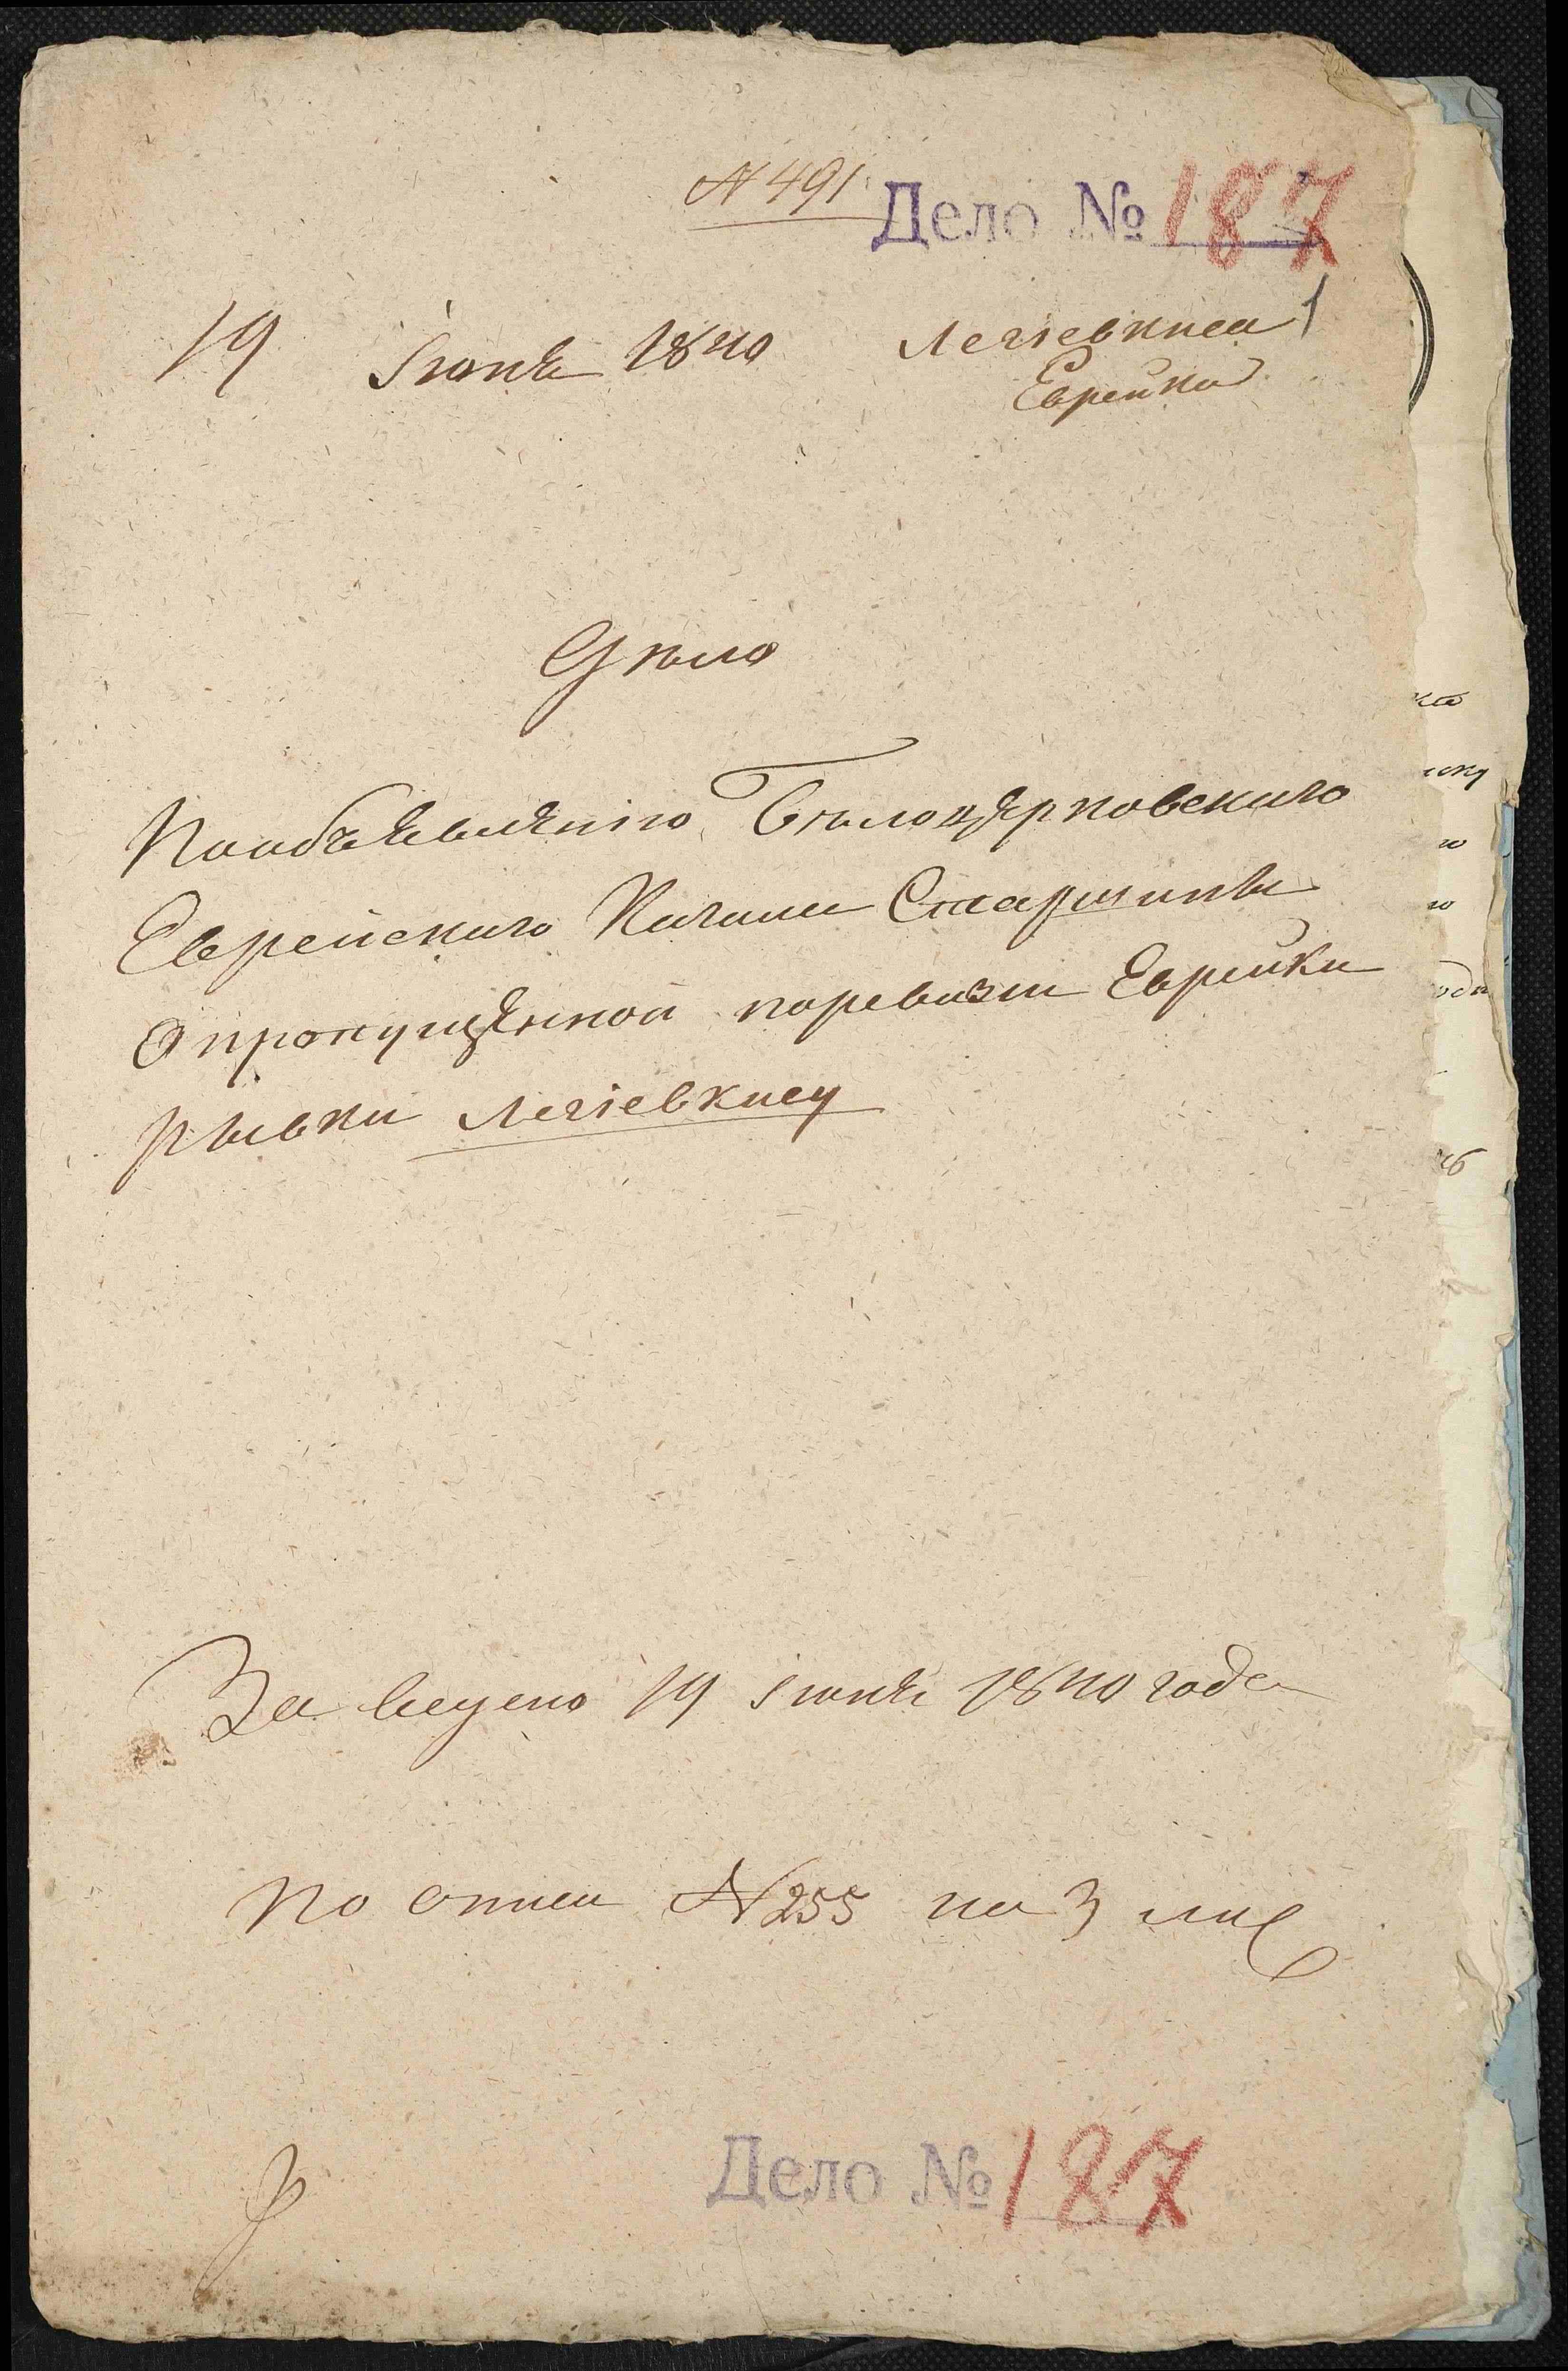 N 491
Дело № 187
1
19 Iюня 1840
Легіевкиса
Еврейка
Дѣло
Пообъявленію Бѣлоцерковскаго
Еврейскаго Кагала Старшины
Опропущенной поревизіи Еврейки
рывки Легіевкису
За ведено 19 Iюня 1840 года
По описи N 255 на 3 лис
Дело № 187